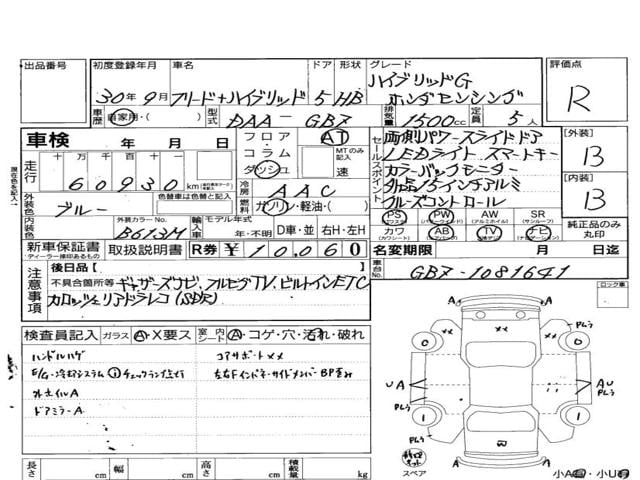 出品番号 初度登録年月 車名 ドア 形状 グレード 評価点
30年9月 フリード+ハイブリッド 5 HB ハイブリッドG
ホンダセンシング
R
車歴 自家用・( ) 型式 DAA- GB7 排気量 1500cc 定員 5人
車検 年 月 日
フロア・コラム ダッシュ AT MTのみ記入 速
セールスポイント
両側パワースライドドア
LEDライト スマートキー
カラーバックモニター
外品15インチアルミ
クルーズコントロール
[外装] B
[内装] B
走行 十 万 千 百 十
60930 km
冷房 AAC
外装色 ブルー 色替車は色替と記入
燃料 ガソリン・軽油・( )
内装色 外装カラーNo. B613M 輸入車 モデル年式 年・不明 D車・並 右H・左H
PS (パワステ) PW (パワーウインド) AW (アルミホイル) SR (サンルーフ)
カワ (カワシート) AB (エアバッグ) TV ナビ (ナビゲーション)
純正品のみ丸印
新車保証書 取扱説明書 R券 ¥10,060
名変期限 月 日迄
注意事項
後日品【 】
不具合箇所等
ギャザーズナビ、フルセグTV、ビルトインETC
カロッツェリアドラレコ(SDR)
車台No. GB7-1081641
ロック車
検査員記入 ガラス A・X要ス 室内シート A・コゲ・穴・汚れ・破れ
ハンドルハゲ コアサポート××
E/G・冷却システム チェックランプ点灯
外ホイルA
ドアミラーA
A A
C O
UA AU
1 1
A A
スペア
長さ cm 幅 cm 高さ cm 積載量 kg
小A 小U